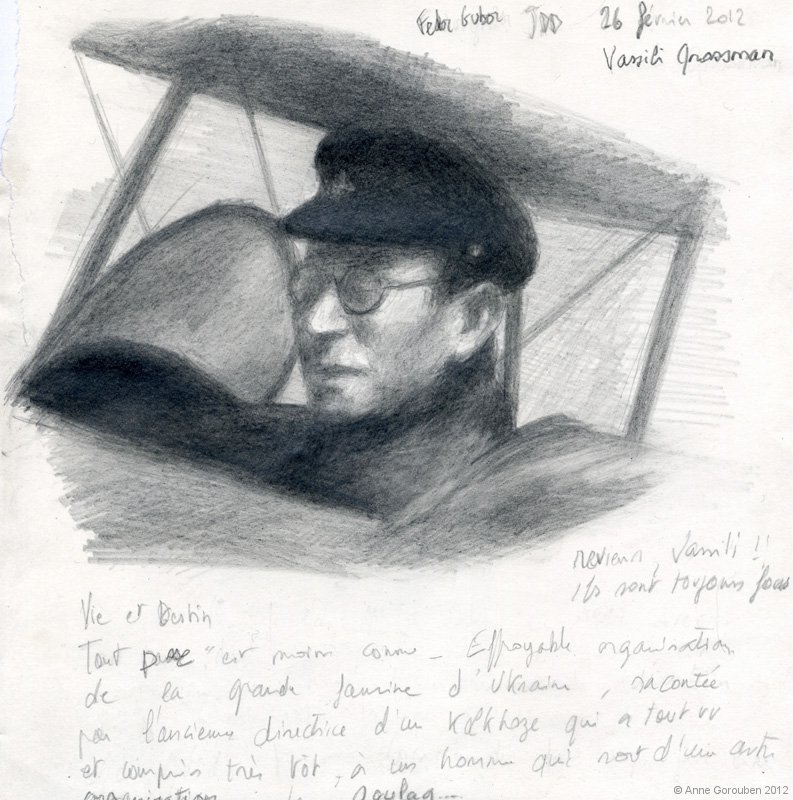 26 février 2012
Vassili Grossman
reviens, Vassili !!
ils sont toujours fous
Vie et Destin
"Tout passe" est moins connu - Effroyable organisation
de la grande famine d'Ukraine, racontée
par l'ancienne directrice d'un Kolkhoze qui a tout vu
et compris très tôt, à un homme qui sort d'une autre
organisation le Goulag...
© Anne Gorouben 2012